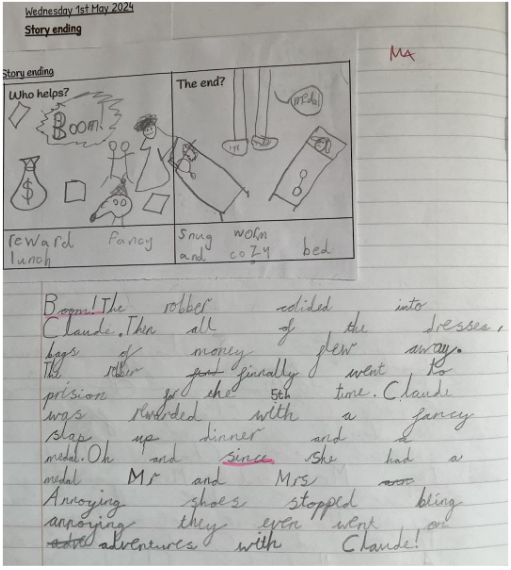 Wednesday 1st May 2024
Story ending
MA
Story ending
Who helps?
The end?
Boom!
medal
$
reward fancy
lunch
snug worm
and cozy bed
Boom! The robber colided into
Claude. Then all of the dresses,
bags of money flew away.
The robber finnally went to
prision for the 5th time. Claude
was rewarded with a fancy
slap up dinner and a
medal. Oh and since she had a
medal Mr and Mrs
Annoying shoes stopped being
annoying they even went on
adventures with Claude!